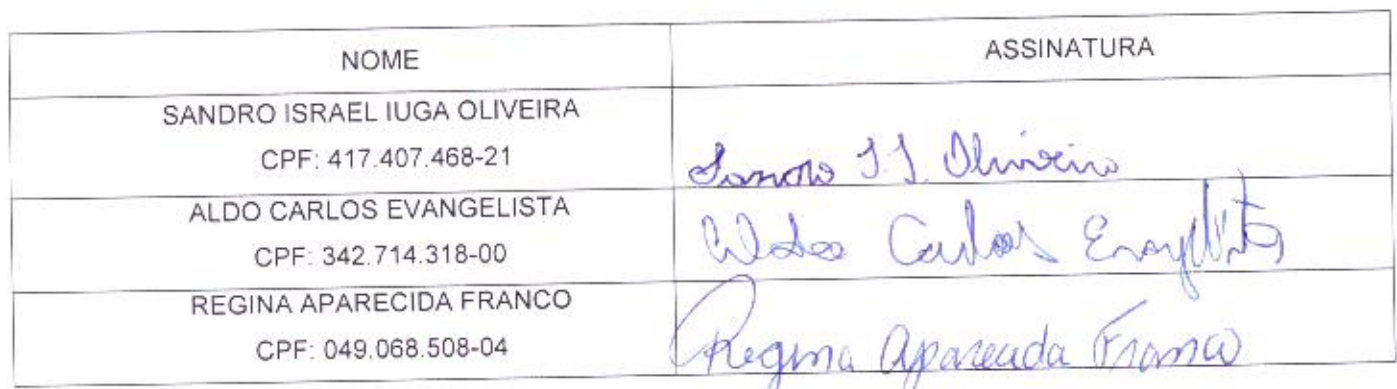 NOME
ASSINATURA
SANDRO ISRAEL IUGA OLIVEIRA
CPF: 417.407.468-21
Sandro I. I. Oliveira
ALDO CARLOS EVANGELISTA
CPF: 342.714.318-00
Aldo Carlos Evangelista
REGINA APARECIDA FRANCO
CPF: 049.068.508-04
Regina Aparecida Franco